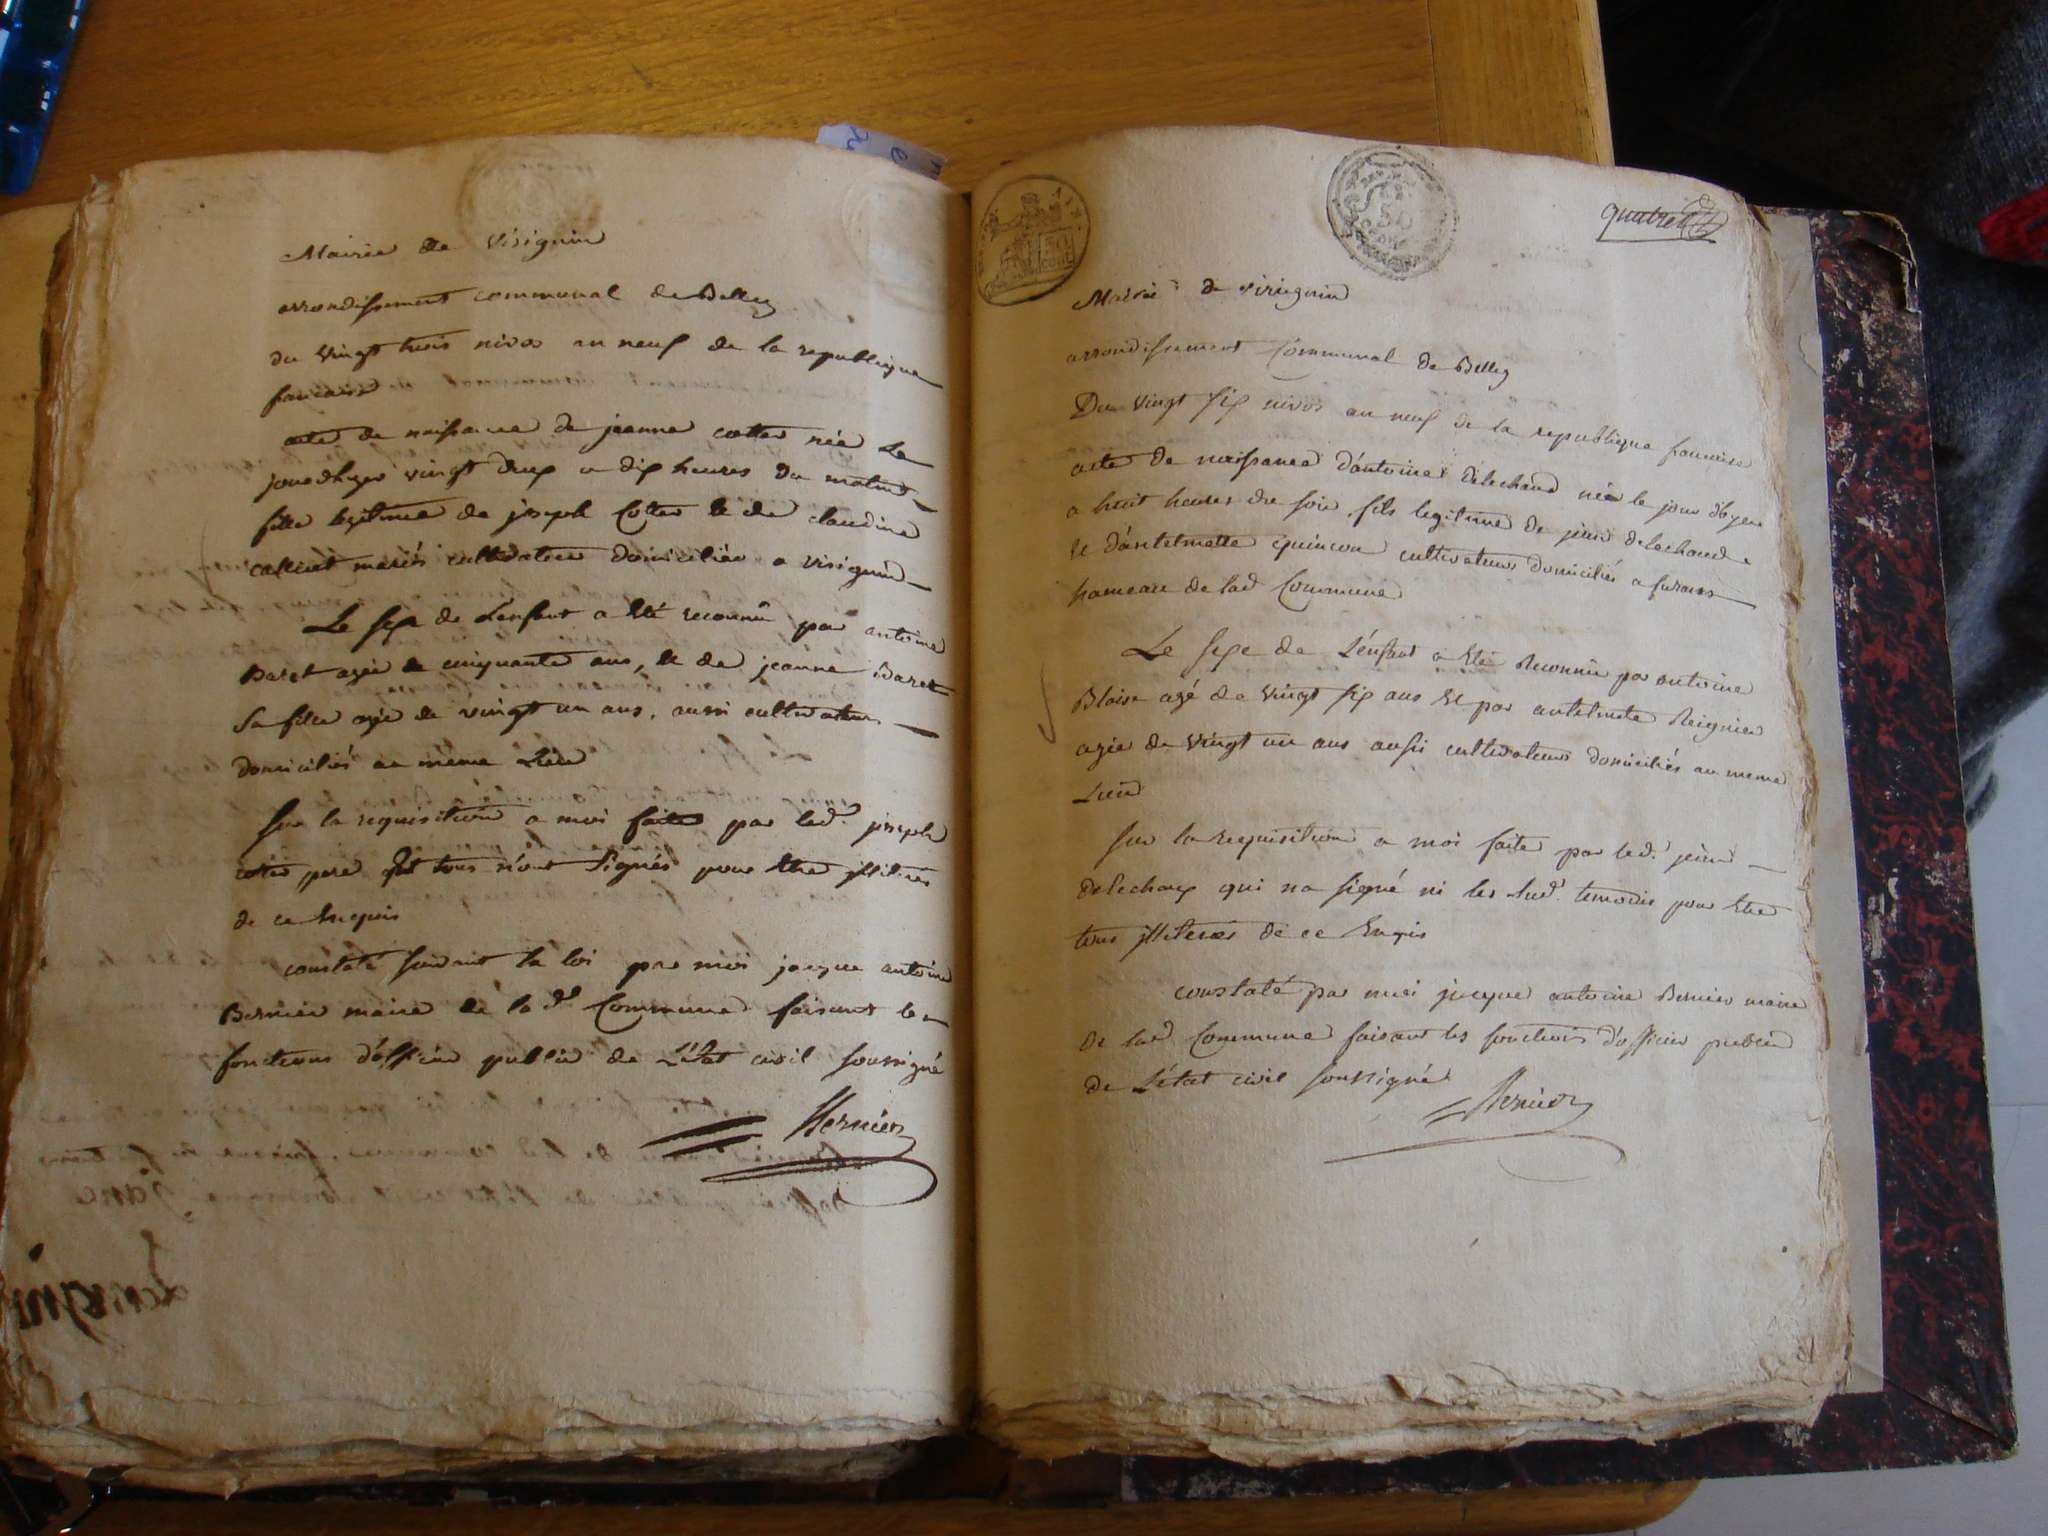 Mairie de Virignin
arrondissement communal de Belley
du vingt trois nivos an neuf de la republique
francaise
acte de naissance de jeanne cotter née Le
jourdhyer vingt deux a dix heures du matin
fille legitime de joseph Cotter et de claudine
calliet mariés cultivateur domiciliés a virignin
Le sexe de L'enfant a Eté reconnû par antoine
Baret agé de cinquante ans, et de jeanne Baret
Sa fille agée de vingt un ans, aussi cultivateurs
domiciliés au même Lieu
Sur la requisition a moi faite par led. joseph
cotter pere et tous n'ont Signés pour Etre illiterés
de ce Enquis
constaté suivant la loi par moi jacque antoine
Bernier maire de la d. Commune faisant les
fonctions d'officier public de L'état civil soussigné
Bernier
50
cent
50
quatre
Mairie de virignin
arrondissement Communal de Belley
Du vingt six nivos an neuf de la republique francaise
acte de naissance d'antoine delechaud née le jour d'hyer
a huit heures du soir fils legitime de jean delechaud
et d'antelmette quincon cultivateurs domiciliés a furans
hameau de lad Commune
Le sexe de L'énfant a Eté Reconnû par antoine
Blaise agé de vingt six ans Et par antelmete Reignier
agée de vingt un ans aussi cultivateurs domiciliés au meme
Lieu
sur la requisition a moi faite par led. jean
delechaux qui na signé ni les sud. temoins pour Etre
tous illiterés de ce Enquis
constaté par moi jacque antoine Bernier maire
de lad Commune faisant les fonctions d'officier public
de L'état civil soussigné
Bernier